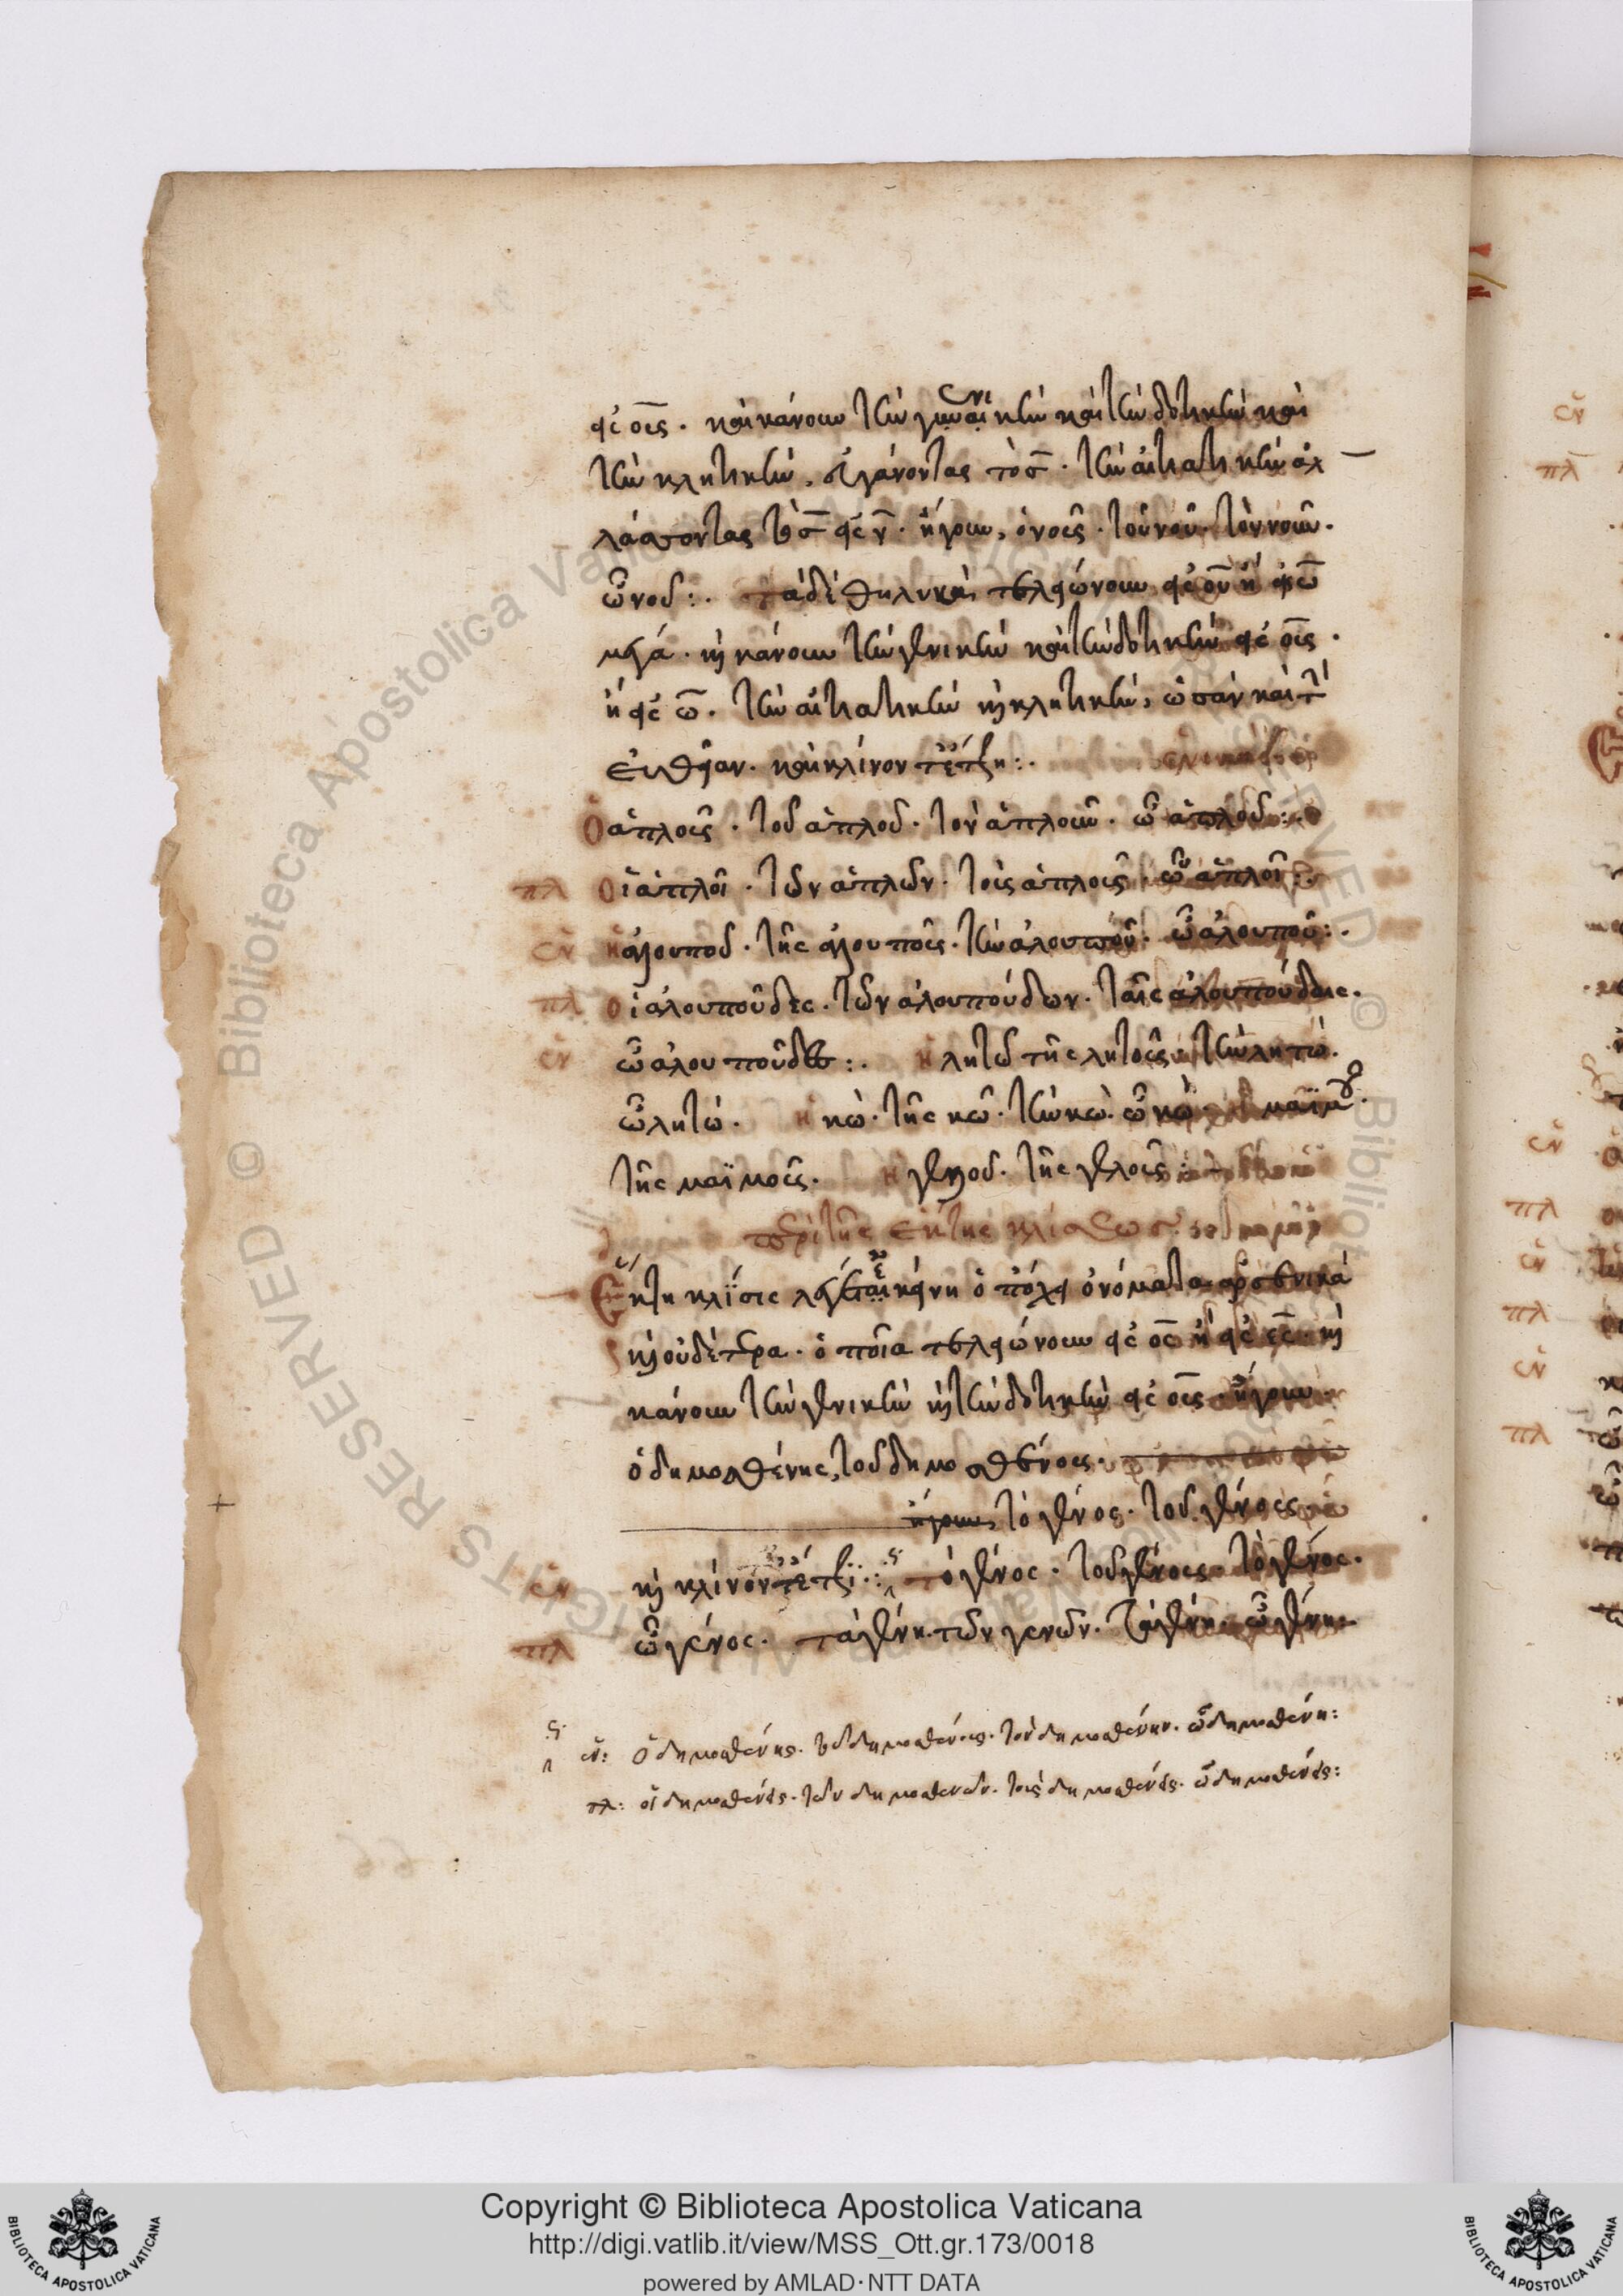 εἰς ους. καὶ κάνουν τὴν γενικὴν καὶ τὴν δοτικὴν καὶ
τὴν κλητικὴν, εὐγάνοντας τὸ σ. τὴν αἰτιατικὴν ἀλ
λάσσοντας τὸ σ εἰς ν. ἤγουν, ὁ νοῦς. τοῦ νοῦ. τὸν νοῦν.
ὦ νοῦ:. τὰ δὲ θηλυκὰ, τελειώνουν εἰς ου ἢ εἰς ω
καὶ κάνουν τὴν γενικὴν καὶ τὴν δοτικὴν εἰς ους.
ἢ εἰς ω. τὴν αἰτιατικὴν καὶ κλητικὴν, ὡσὰν καὶ τὴν
εὐθεῖαν. καὶ κλίνονται ἔτζη:.
Ὁ ἁπλοῦς. τοῦ ἁπλοῦ. τὸν ἁπλοῦν. ὦ ἁπλοῦ:.
πλ Οἱ ἁπλοῖ. τῶν ἁπλῶν. τοὶς ἁπλοῦς. ὦ ἁπλοῖ:.
ἑν ἡ ἀλουποῦ. τῆς ἀλουποῦς. τὴν ἀλουποῦ. ὦ ἀλουποῦ:.
πλ οἱ ἀλουποῦδες. τῶν ἀλουπούδων. ταῖς ἀλουπούδαις.
ἑν ὦ ἀλουποῦδες:. ἡ λητὼ τῆς λητοῦς. τὴν λητώ.
ὦ λητώ. ἡ κὼ. τῆς κῶ. τὴν κὼ. ὦ κὼ. ἡ μαϊμοῦ.
τῆς μαϊμοῦς. ἡ γελοῦ. τῆς γελοῦς:
περὶ τῆς ἕκτης κλίσεως
Ἕκτη κλίσις λέγεται ἐκείνη ὁποὺ ἔχει ὀνόματα ἀρσενικά
καὶ οὐδέτερα. ὁποῖα τελειώνουν εἰς ος ἢ εἰς ες. καὶ
κάνουν τὴν γενικὴν καὶ τὴν δοτικὴν εἰς ους. ἤγουν
ὁ δημοσθένης, τοῦ δημοσθένους.
ἤγουν, τὸ γένος. τοῦ γένους.
ἑν καὶ κλίνονται ἔτζι:. τὸ γένος. τοῦ γένους. τὸ γένος.
πλ ὦ γένος. τὰ γένη. τῶν γενῶν. τὰ γένη. ὦ γένη:
ἑν: Ὁ δημοσθένης. τοῦ δημοσθένους. τὸν δημοσθένην. ὦ δημοσθένη:
πλ: οἱ δημοσθένεις. τῶν δημοσθενῶν. τοὶς δημοσθένεις. ὦ δημοσθένεις:
Copyright © Biblioteca Apostolica Vaticana
http://digi.vatlib.it/view/MSS_Ott.gr.173/0018
powered by AMLAD·NTT DATA